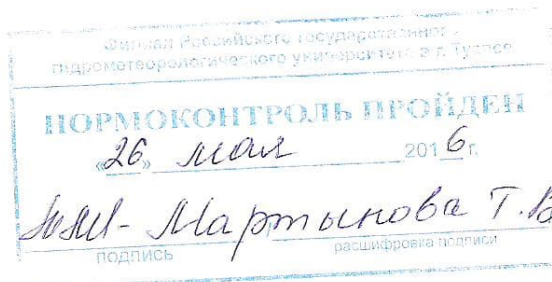 Филиал Российского государственного
гидрометеорологического университета в г. Туапсе
НОРМОКОНТРОЛЬ ПРОЙДЕН
«26» мая 2016 г.
Мартынова Т.В
подпись расшифровка подписи